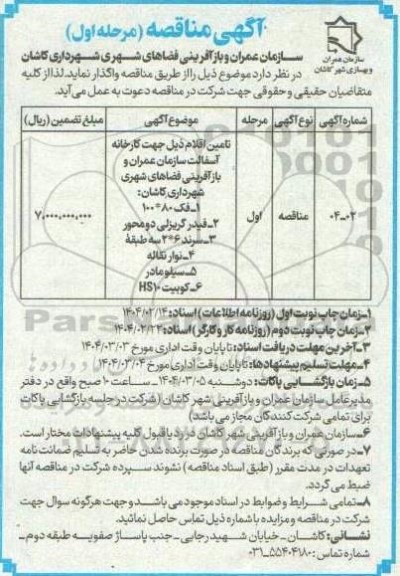 آگهی مناقصه (مرحله اول)
سازمان عمران
و بهسازی شهر کاشان
سازمان عمران و بازآفرینی فضاهای شهری شهرداری کاشان
در نظر دارد موضوع ذیل را از طریق مناقصه واگذار نماید. لذا از کلیه
متقاضیان حقیقی و حقوقی جهت شرکت در مناقصه دعوت به عمل می‌آید.
شماره آگهی نوع آگهی مرحله موضوع آگهی مبلغ تضمین (ریال)
۰۲-۰۴ مناقصه اول
تامین اقلام ذیل جهت کارخانه
آسفالت سازمان عمران و
بازآفرینی فضاهای شهری
شهرداری کاشان:
۱_فک ۸۰*۱۰۰
۲_فیدر گریزلی دومحور
۳_سرند ۶*۲ سه طبقه
۴_نوار نقاله
۵_سیلو مادر
۶_کوبیت HS۱۰
۷,۰۰۰,۰۰۰,۰۰۰
۱_زمان چاپ نوبت اول (روزنامه اطلاعات) اسناد: ۱۴۰۴/۰۲/۱۴
۲_زمان چاپ نوبت دوم (روزنامه کار و کارگر) اسناد: ۱۴۰۴/۰۲/۲۲
۳_آخرین مهلت دریافت اسناد: تا پایان وقت اداری مورخ ۱۴۰۴/۰۳/۰۳
۴_مهلت تسلیم پیشنهادها: تا پایان وقت اداری مورخ ۱۴۰۴/۰۳/۰۴
۵_زمان بازگشایی پاکات: دوشنبه ۱۴۰۴/۰۳/۰۵_ساعت ۱۰ صبح واقع در دفتر
مدیرعامل سازمان عمران و بازآفرینی شهر کاشان (شرکت در جلسه بازگشایی پاکات
برای تمامی شرکت کنندگان مجاز می‌باشد)
۶_سازمان عمران و بازآفرینی شهر کاشان در رد یا قبول کلیه پیشنهادات مختار است.
۷_در صورتی که برندگان مناقصه در صورت برنده شدن حاضر به تسلیم ضمانت نامه
تعهدات در مدت مقرر (طبق اسناد مناقصه) نشوند سپرده شرکت در مناقصه آنها
ضبط می‌گردد.
۸_تمامی شرایط و ضوابط در اسناد موجود می‌باشد و جهت هرگونه سوال جهت
شرکت در مناقصه و مزایده با شماره ذیل تماس حاصل نمائید.
نشانی: کاشان_خیابان شهید رجایی_جنب پاساژ صفویه_طبقه دوم_
شماره تماس: ۵۵۴۰۴۱۸۰_۰۳۱